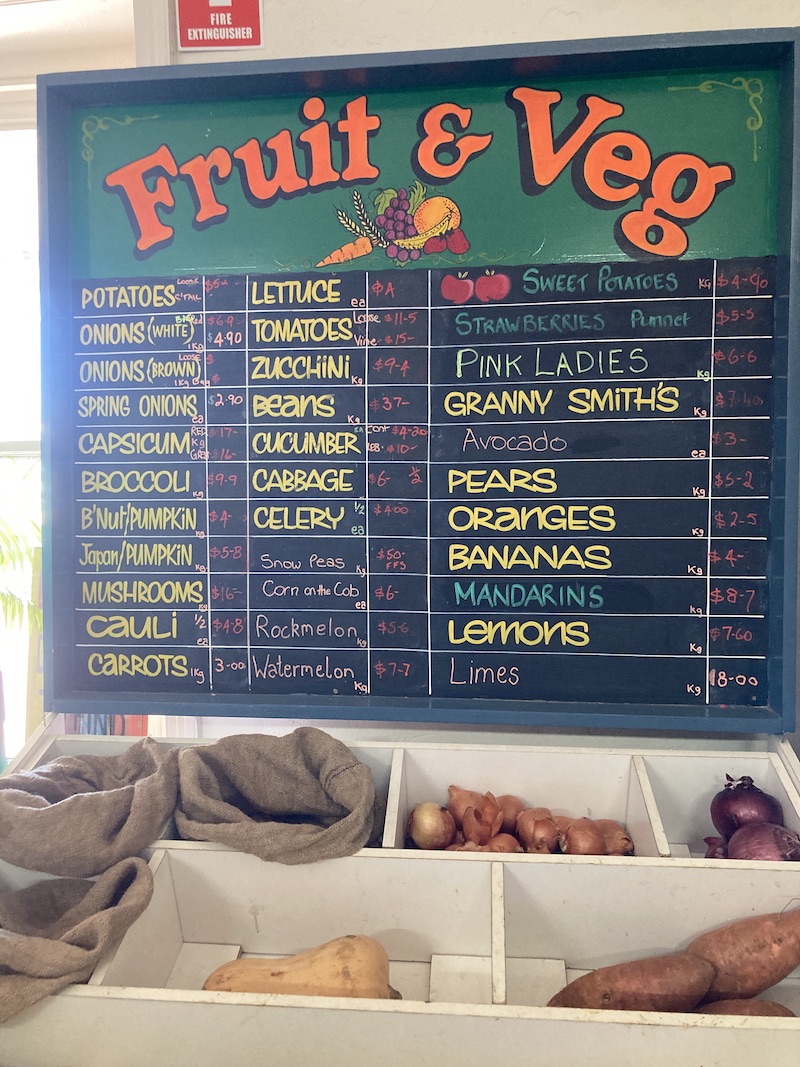 FIRE
EXTINGUISHER
Fruit & Veg
POTATOES LOOSE $5-
ONIONS (WHITE) 1Kg $6-9 4.90
ONIONS (BROWN) LOOSE $ 1Kg $
SPRING ONIONS ea $2.90
CAPSICUM RED Kg $17- GRN $16-
BROCCOLI Kg $9-9
B'Nut/PUMPKIN Kg $4-
Japan/PUMPKIN Kg $5-8
MUSHROOMS Kg $16-
CAULI 1/2 ea $4-8
CARROTS 1Kg 3-00
LETTUCE ea $A
TOMATOES Loose $11-5 Vine $15-
ZUCCHINI Kg $9-4
BEANS Kg $37-
CUCUMBER $4-20 LEB. $10-
CABBAGE $6- 1/2
CELERY 1/2 ea $4-00
Snow Peas Kg $50- FFS
Corn on the Cob ea $6-
Rockmelon Kg $5-6
Watermelon Kg $7-7
SWEET POTATOES KG $4-90
STRAWBERRIES Punnet $5-5
PINK LADIES Kg $6-6
GRANNY SMITH'S Kg $7-40
Avocado ea $3-
PEARS Kg $5-2
ORANGES Kg $2-5
BANANAS Kg $4-
MANDARINS Kg $8-7
LEMONS Kg $7-60
Limes Kg 18-00